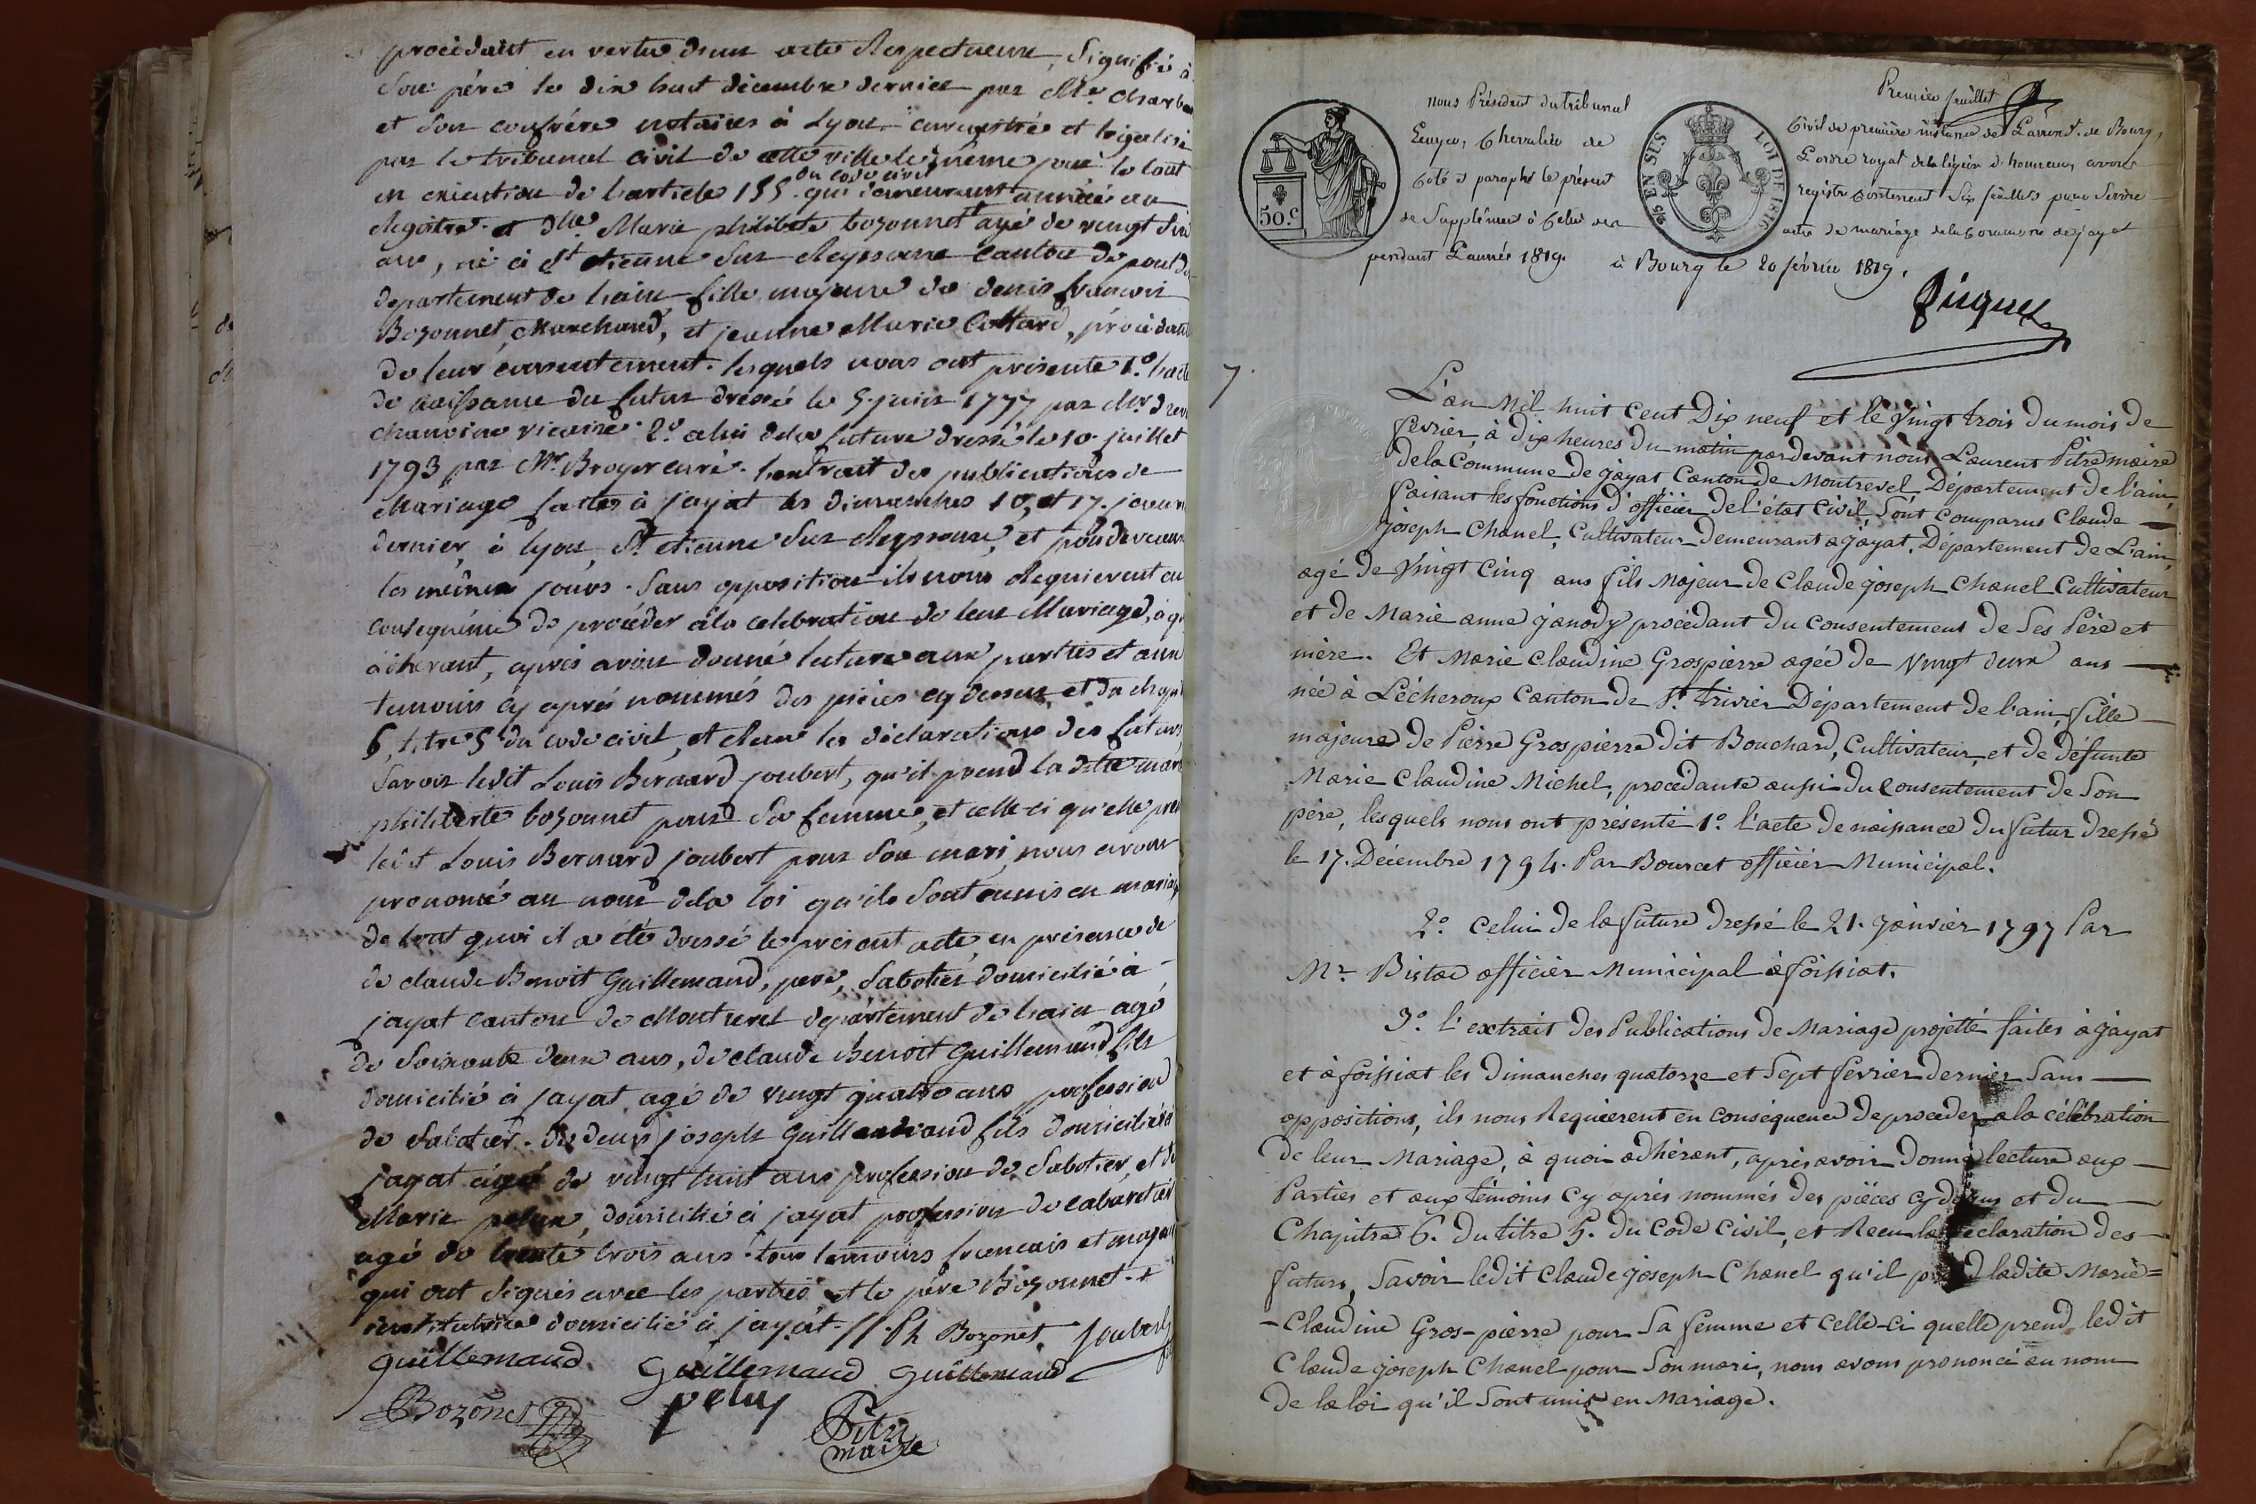 procèdant en vertu d'un acte Respectueux, Signifié à
Son père le dix huit décembre dernier par Me. Charb
et son confrère notaires à Lyon enregistré et légalisé
par le tribunal civil de cette ville le même jour le tout
du code civil
en exécution de l'article 155. qui demeureront annéxé au
Registre. et Dlle. Marie philiberte bozonnet agé de vingt six
ans, né à St. etienne Sur Reyssouze Canton de pont de
departement de l'ain fille majeure de denis francois
Bozonnet, Marchand, et jeanne Marie Cottard, procèdant
de leur consentement. lesquels nous ont présenté 1.° l'acte
de naissance du futur dressé le 5. juin 1777 par Mr.
chanoine vicaire. 2.° celui dela future dressé le 10. juillet
1793 par Mr. Broyer curé. l'extrait des publications de
Mariage faites à jayat les dimanches 10, et 17. janvi
dernier, à lyon, St. etienne Sur Reyssouze, et
les mêmes jours. Sans opposition ils nous Requierent en
conséquence de procéder à la celebration de leur Mariage, à q
adhérant, après avoir donné lecture aux parties et aux
temoins cy après nommés des pièces cy dessus et du chapi
6, titre 5 du code civil, et Recu les déclarations des futurs
Savoir ledit Louis Bernard joubert, qu'il prend la dite mari
philiberte bozonnet pour Sa femme, et celle-ci qu'elle pren
ledit Louis Bernard joubert pour Son mari, nous avons
prononcé au nom dela loi qu'ils Sont unis en mariag
de tout quoi il a été dressé le présent acte, en présence de
de claude Benoit Guillemaud, père, Sabotier domicilié à
jayat canton de Montrevel département de l'ain agé
de Soixante deux ans, de claude Benoit Guillemaud fils
domicilié à jayat agé de vingt quatre ans profession
de Sabotier. de joseph Guillemaud fils domicilié à
jayat agé de vingt huit ans profession de Sabotier, et de
Marie domicilié à jayat profession de cabaretier
agé de trente trois ans. tous temoins francais et majeu
qui ont signés avec les parties et le père Bozonnet. +
institutrice domicilié à jayat. //. Ph Bozonet. Joubert
Guillemaud. Guillemaud Guillemaud
Bozonet pelu Pitre
maire
Premier feuillet
nous Président du tribunal Civil de première instance de L'arrond.t de Bourg,
Ecuyer, Chevalier de L'ordre royal de la légion d'honneur, avons
Coté et paraphé le présent registre Contenant Six feuillets pour Servir
de Supplément à Celui des actes de mariage de la Commune de jayat
pendant L'année 1819. à Bourg le 20 février 1819.
50.c
5/5 EN SUS
LOI DE 1816
Picquet
7.
L'an Mil huit Cent Dix neuf et le Vingt trois du mois de
fevrier, à Dix heures du matin pardevant nous Laurent Pitre maire
de la Commune de Jayat Canton de Montrevel, Département de l'ain,
faisant les fonctions d'officier de l'état Civil, Sont comparus Claude
joseph Chanel, Cultivateur demeurant à Jayat, Département de L'ain,
agé de Vingt Cinq ans fils Majeur de Claude joseph Chanel Cultivateur
et de Marie anne janody procèdant du Consentement de Ses Père et
mère. Et Marie Claudine Grospierre agée de Vingt deux ans
née à Lécheroux Canton de St. trivier Département de l'ain, fille
majeure de Pierre Grospierre dit Bouchard, Cultivateur, et de défunte
Marie Claudine Michel, procèdante aussi du Consentement de Son
père, lesquels nous ont présenté 1.° l'acte de naissance du futur dressé
le 17. Décembre 1794. Par Bourcet officier Municipal.
2.° Celui de la future dressé le 21. janvier 1797 Par
Mr. officier Municipal à foissiat.
3.° l'extrait des Publications de Mariage projetté faites à jayat
et à foissiat les Dimanches quatorze et Sept fevrier dernier Sans
oppositions, ils nous Requierent en conséquence de proceder à la célébration
de leur Mariage, à quoi adhérant, après avoir donné lecture aux
Parties et aux témoins Cy après nommés des pièces cy dessus et du
Chapitre 6. du titre 5. du Code Civil, et Recu la déclaration des
futurs, Savoir ledit Claude joseph Chanel qu'il prend ladite Marie=
-Claudine Gros-pierre pour Sa femme et Celle-Ci quelle prend ledit
Claude joseph Chanel pour Son mari, nous avons prononcé au nom
de la loi qu'il Sont unis en Mariage.